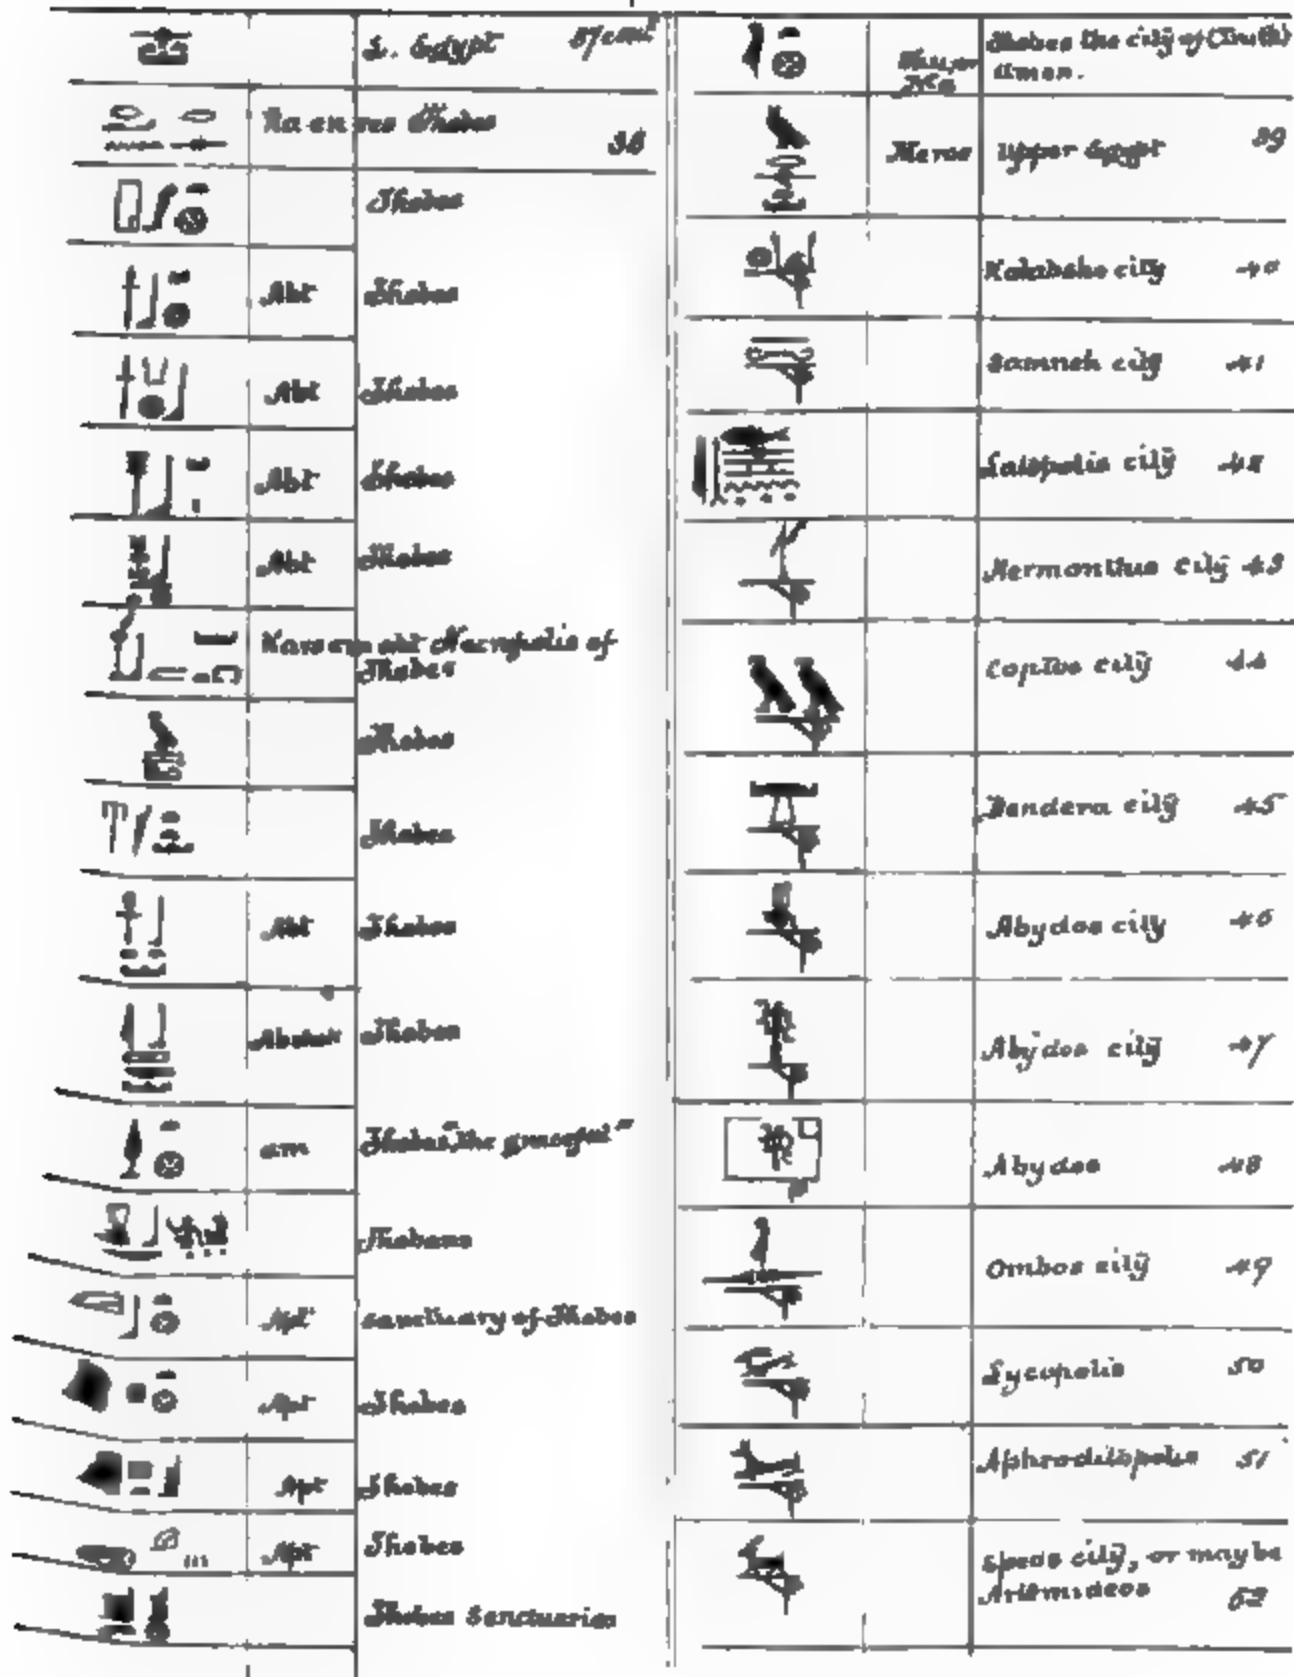 L. Egypt 37 cont
Ra en res Thebes
38
Thebes
Abt Thebes
Abt Thebes
Abt Thebes
Abt Thebes
Necropolis of
Thebes
Thebes
Thebes
Abt Thebes
Thebes
am Thebes "the graceful"
Thebans
Apt sanctuary of Thebes
Apt Thebes
Apt Thebes
Apt Thebes
Thebes Sanctuaries
Thebes the city of (Truth)
Amon.
Meroe Upper Egypt 39
Kalabshe city 40
Samneh city 41
Latopolis city 42
Hermonthus city 43
Coptos city 44
Dendera city 45
Abydos city 46
Abydos city 47
Abydos 48
Ombos city 49
Lycopolis 50
Aphroditopolis 51
Speos city, or may be
Artemideos 52